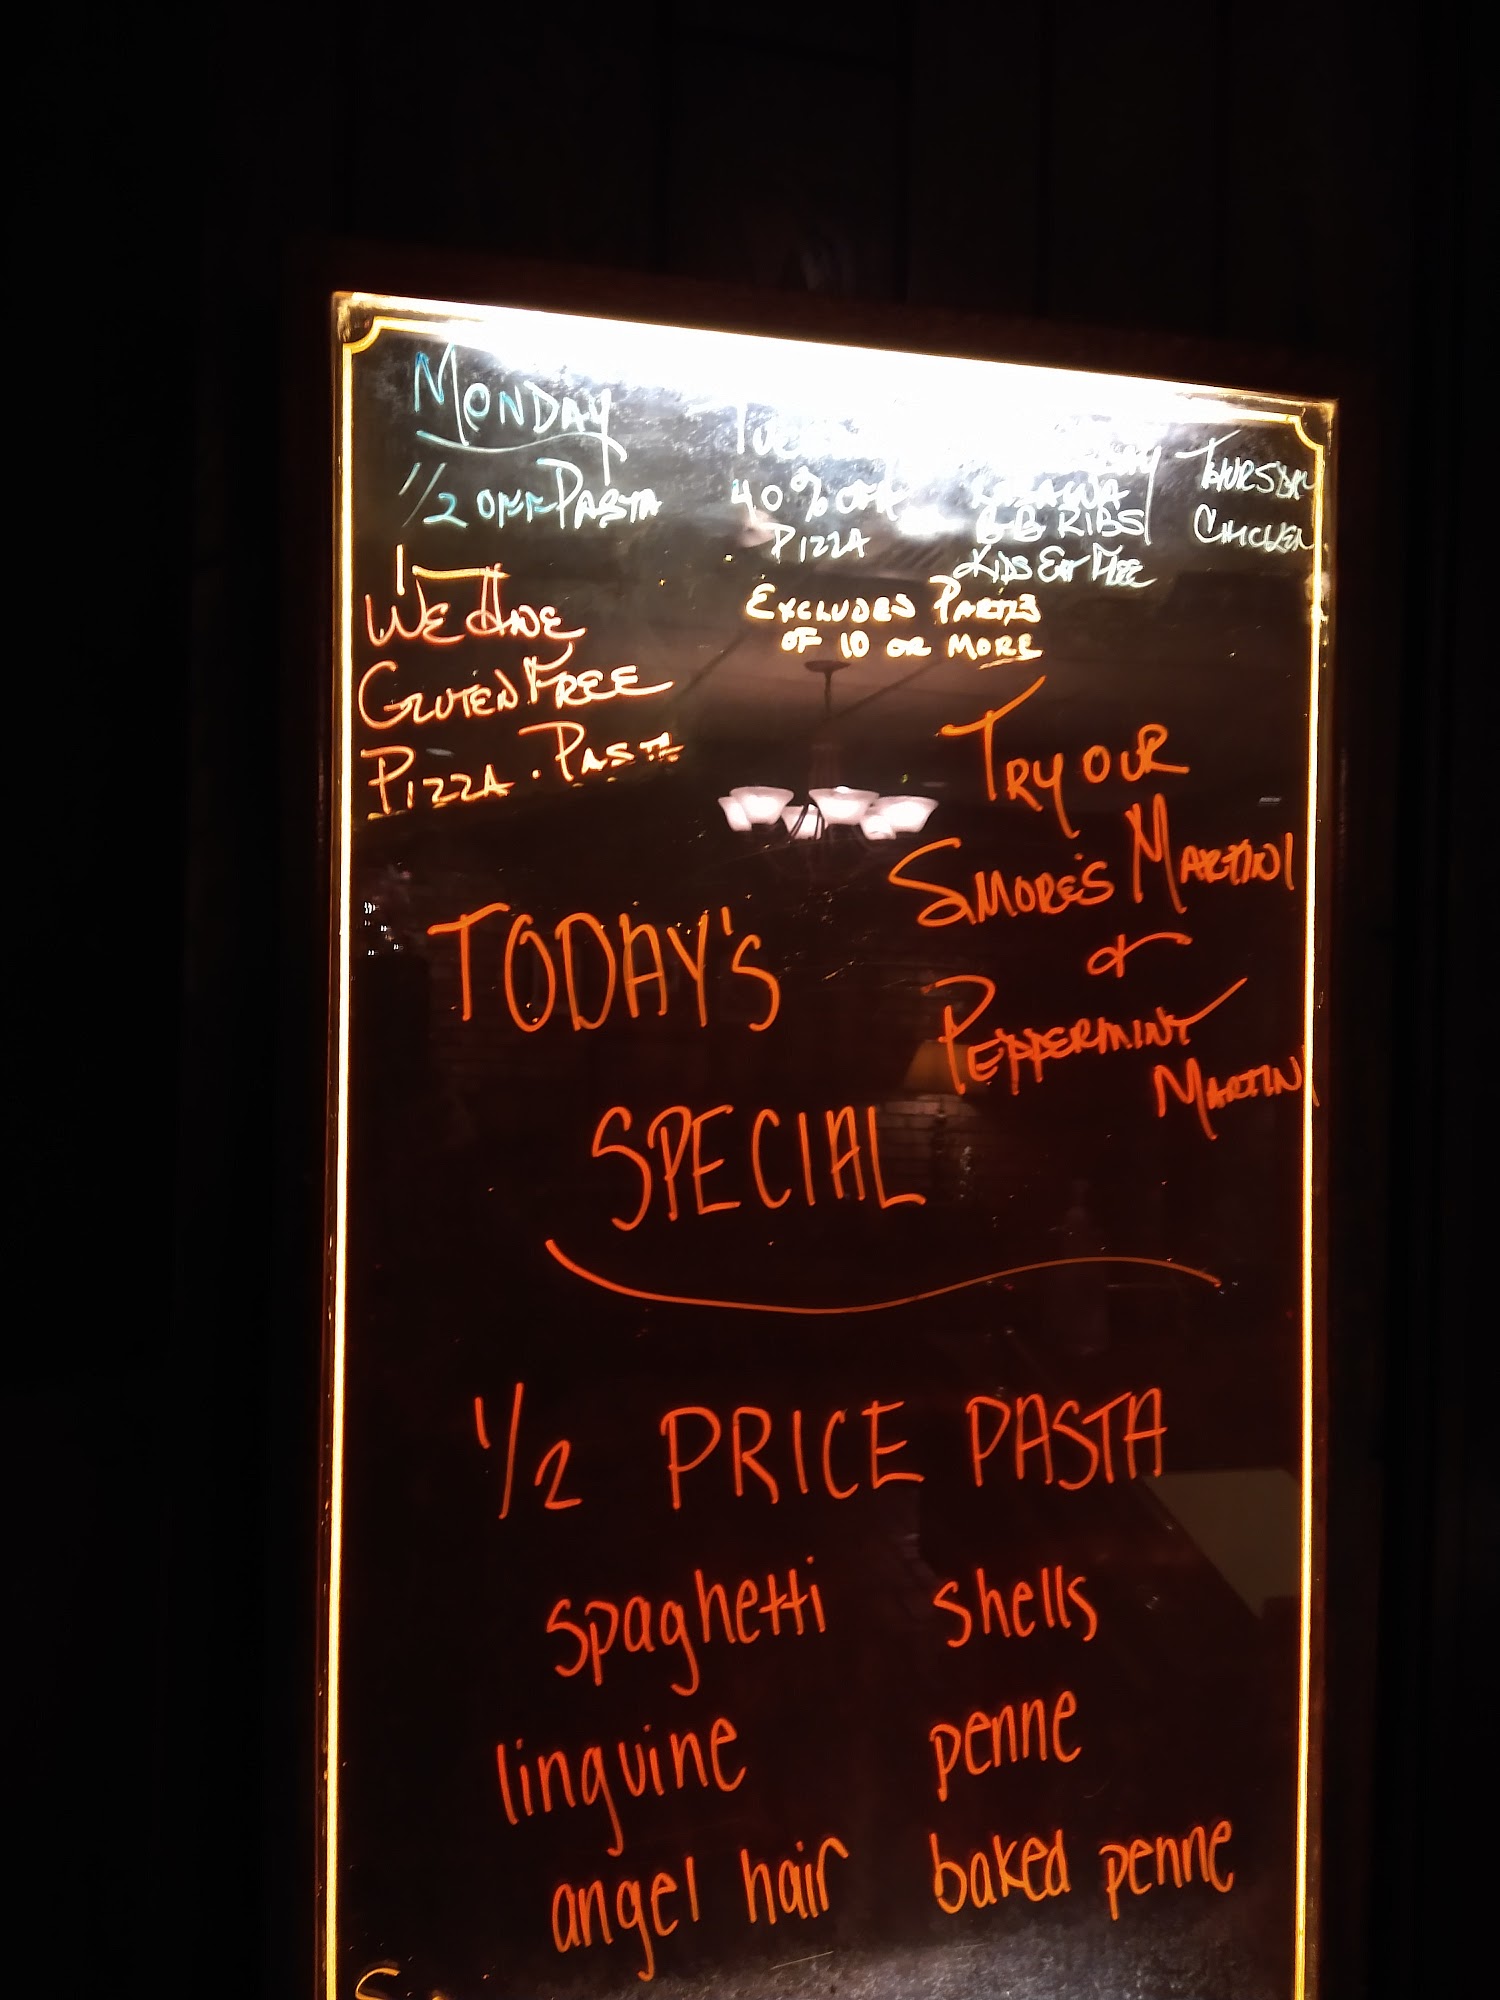 MONDAY
1/2 OFF PASTA
40% OFF
PIZZA
BB RIBS
KIDS EAT FREE
THURSDAY
CHICKEN
EXCLUDES PARTIES
OF 10 OR MORE
WE HAVE
GLUTEN FREE
PIZZA . PASTA
TRY OUR
SMORE'S MARTINI
&
PEPPERMINT
MARTINI
TODAY'S
SPECIAL
1/2 PRICE PASTA
spaghetti shells
linguine penne
angel hair baked penne